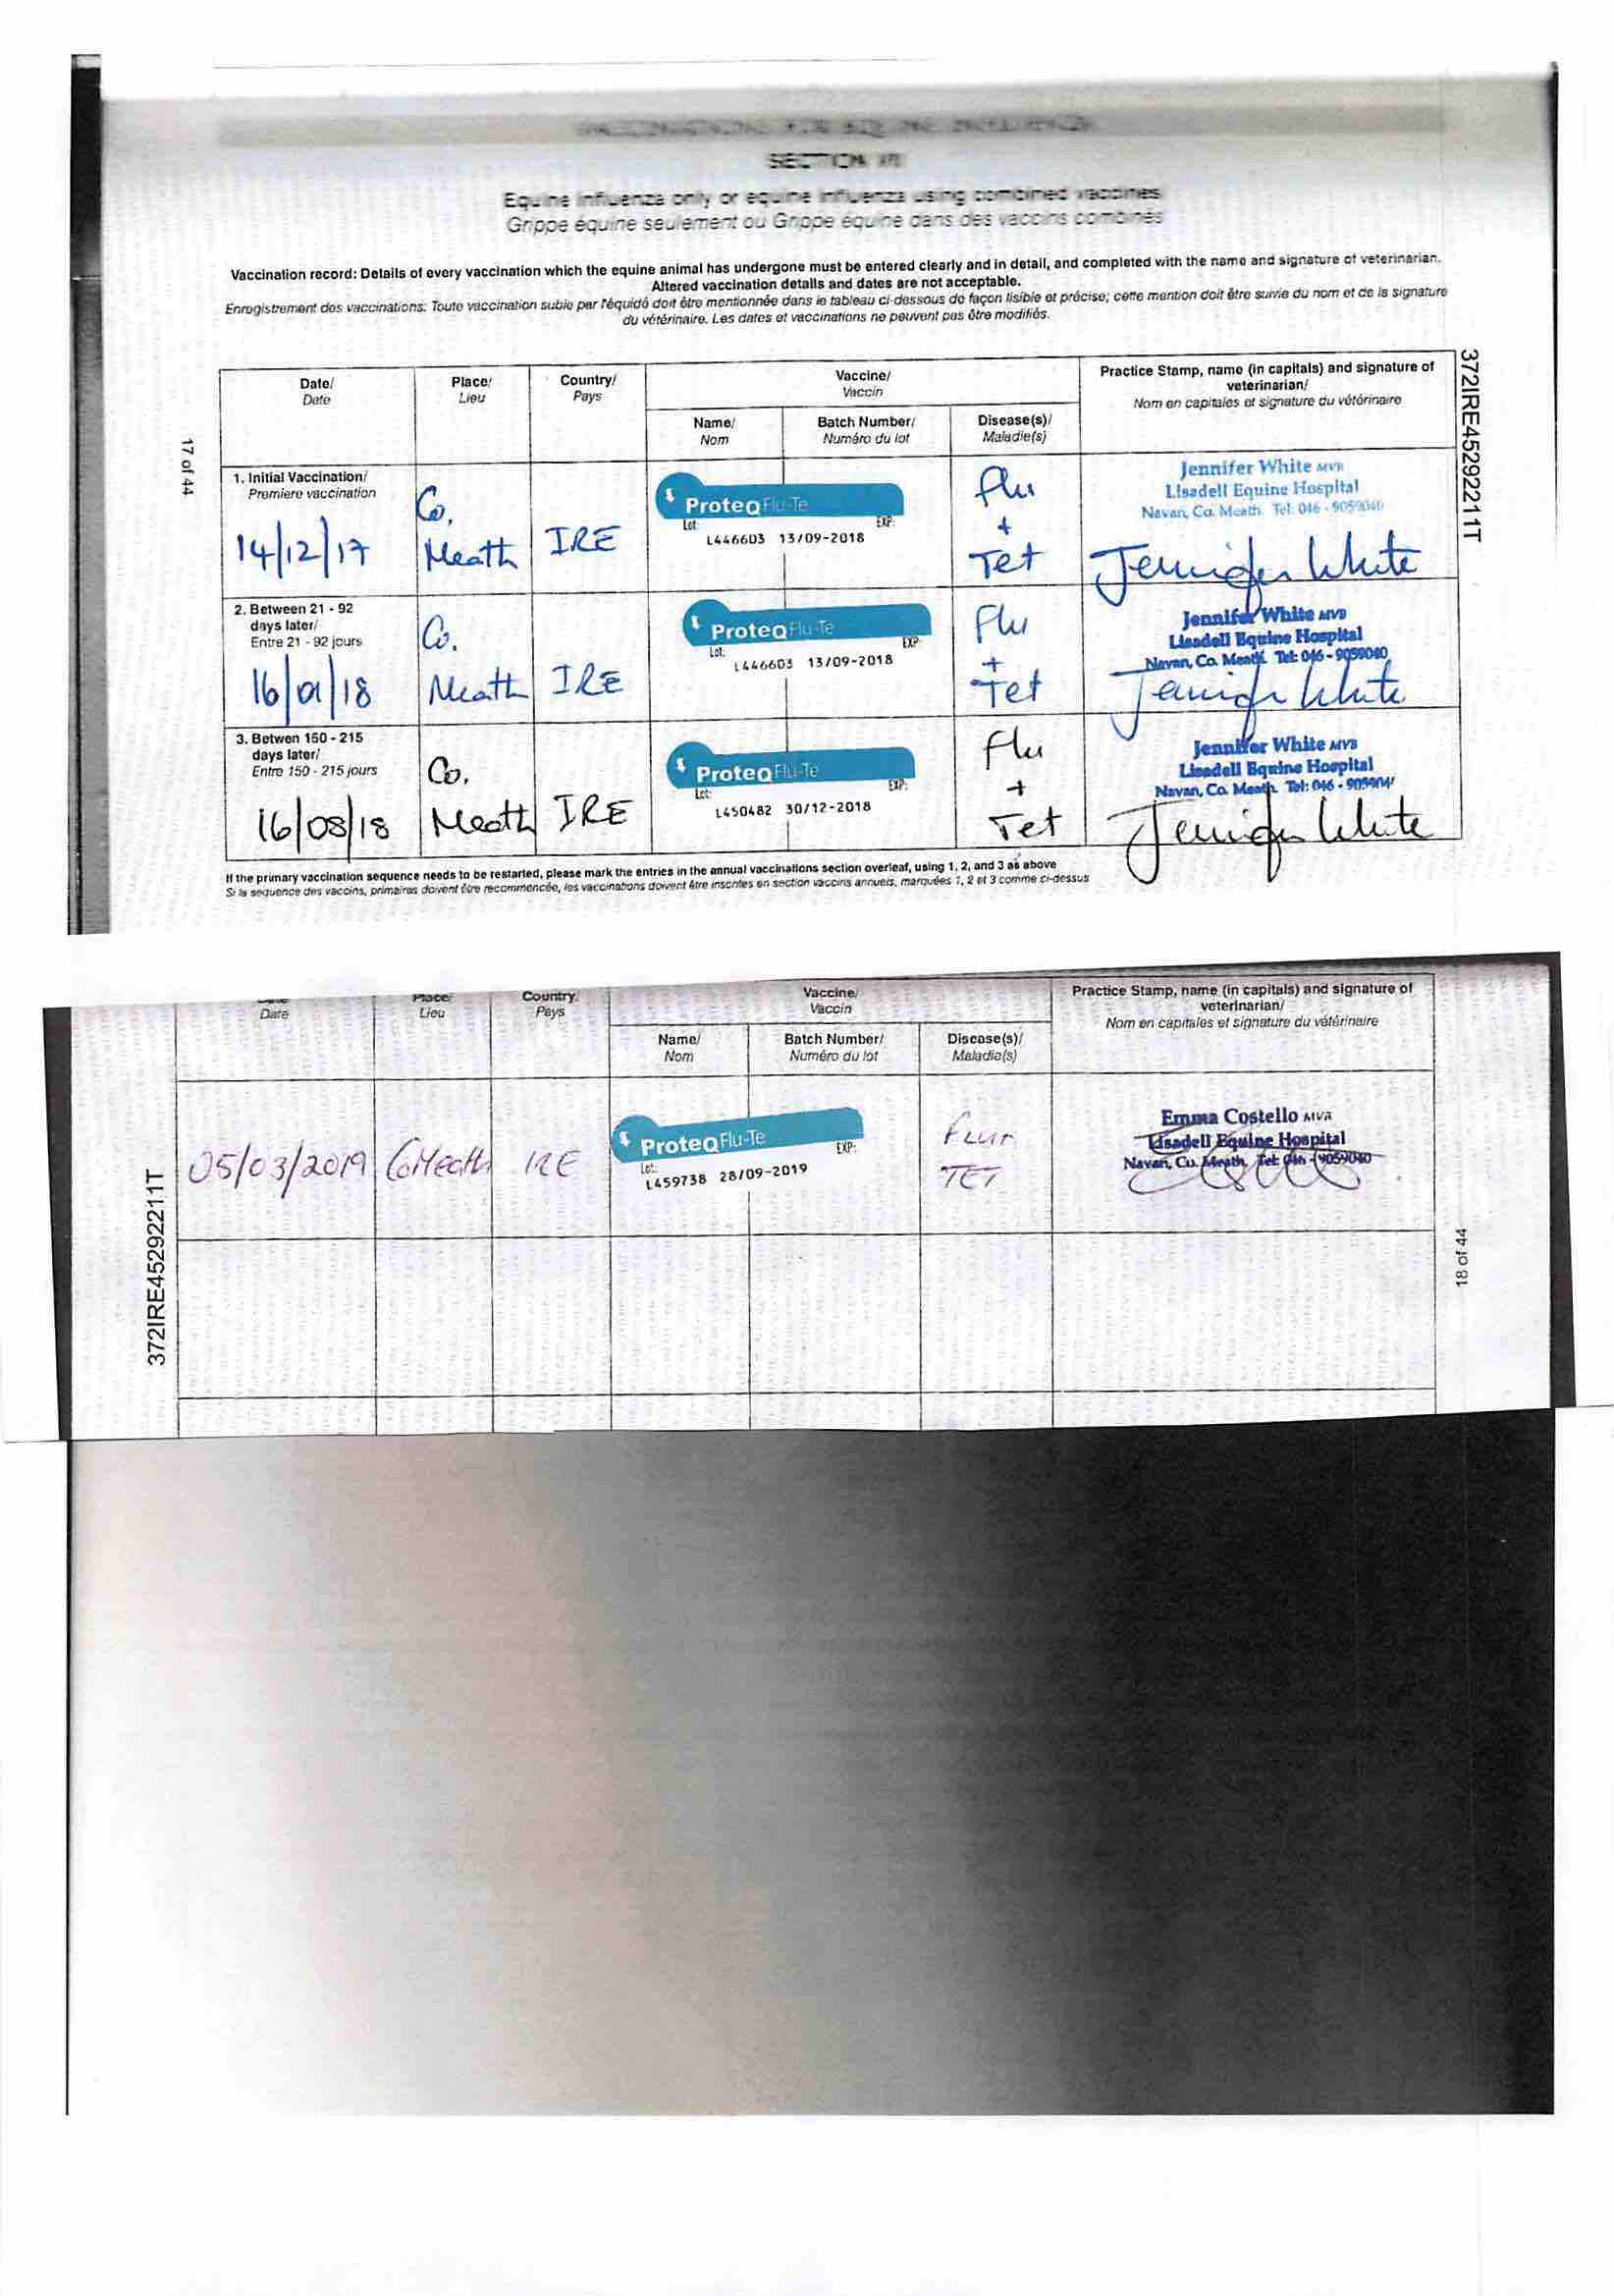 VACCINATIONS FOR EQUINE INFLUENZA
SECTION
Equine influenza only or equine influenza using combined vaccines
Grippe équine seulement ou Grippe équine dans des vaccins combinés
Vaccination record: Details of every vaccination which the equine animal has undergone must be entered clearly and in detail, and completed with the name and signature of veterinarian.
Altered vaccination details and dates are not acceptable.
Enregistrement des vaccinations: Toute vaccination subie par l'équidé doit être mentionnée dans le tableau ci-dessous de façon lisible et précise; cette mention doit être suivie du nom et de la signature
du vétérinaire. Les dates et vaccinations ne peuvent pas être modifiés.
372IRE452922111T
17 of 44
Date/ Place/ Country/ Vaccine/ Practice Stamp, name (in capitals) and signature of
Date Lieu Pays Vaccin veterinarian/
Nom en capitales et signature du vétérinaire
Name/ Batch Number/ Disease(s)/
Nom Numéro du lot Maladie(s)
1. Initial Vaccination/
Premiere vaccination
14/12/17
Co.
Meath
IRE
ProteqFlu-Te
Lot: EXP:
L446603 13/09-2018
Flu
+
Tet
Jennifer White MVB
Lisadell Equine Hospital
Navan, Co. Meath. Tel: 046 - 9059040
Jennifer White
2. Between 21 - 92
days later/
Entre 21 - 92 jours
16/01/18
Co.
Meath
IRE
ProteqFlu-Te
Lot: EXP:
L446603 13/09-2018
Flu
+
Tet
Jennifer White MVB
Lisadell Equine Hospital
Navan, Co. Meath. Tel: 046 - 9059040
Jennifer White
3. Betwen 150 - 215
days later/
Entre 150 - 215 jours
16/08/18
Co.
Meath
IRE
ProteqFlu-Te
Lot: EXP:
L450482 30/12-2018
Flu
+
Tet
Jennifer White MVB
Lisadell Equine Hospital
Navan, Co. Meath. Tel: 046 - 905904
Jennifer White
If the primary vaccination sequence needs to be restarted, please mark the entries in the annual vaccinations section overleaf, using 1, 2, and 3 as above
Si la sequence des vaccins, primaires doivent être recommencée, les vaccinations doivent être inscrites en section vaccins annuels, marquées 1, 2 et 3 comme ci-dessus
Date Place/ Country/ Vaccine/ Practice Stamp, name (in capitals) and signature of
Date Lieu Pays Vaccin veterinarian/
Nom en capitales et signature du vétérinaire
Name/ Batch Number/ Disease(s)/
Nom Numéro du lot Maladie(s)
05/03/2019
Co Meath
IRE
ProteqFlu-Te
Lot: EXP:
L459738 28/09-2019
FLU+
TET
Emma Costello MVB
Lisadell Equine Hospital
Navan, Co. Meath, Tel: 046 - 9059040
372IRE452922111T
18 of 44